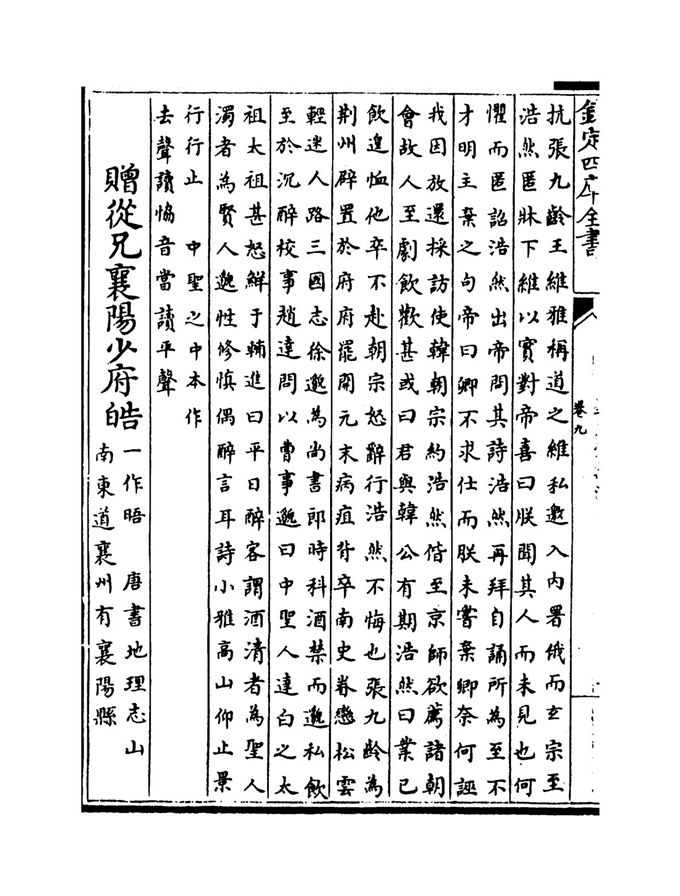 欽定四庫全書
卷九
抗張九齡王維雅稱道之維私邀入内署俄而玄宗至
浩然匿牀下維以實對帝喜曰朕聞其人而未見也何
懼而匿詔浩然出帝問其詩浩然再拜自誦所為至不
才明主棄之句帝曰卿不求仕而朕未嘗棄卿奈何誣
我因放還採訪使韓朝宗約浩然偕至京師欲薦諸朝
會故人至劇飲歡甚或曰君與韓公有期浩然曰業已
飲遑恤他卒不赴朝宗怒辭行浩然不悔也張九齡為
荆州辟置於府府罷開元末病疽背卒南史眷戀松雲
輕迷人路三國志徐邈為尚書郎時科酒禁而邈私飲
至於沉醉校事趙達問以曹事邈曰中聖人達白之太
祖太祖甚怒鮮于輔進曰平日醉客謂酒清者為聖人
濁者為賢人邈性修慎偶醉言耳詩小雅高山仰止景
行行止　中聖之中本作
去聲讀恊音當讀平聲
贈從兄襄陽少府皓
一作晤　唐書地理志山
南東道襄州有襄陽縣